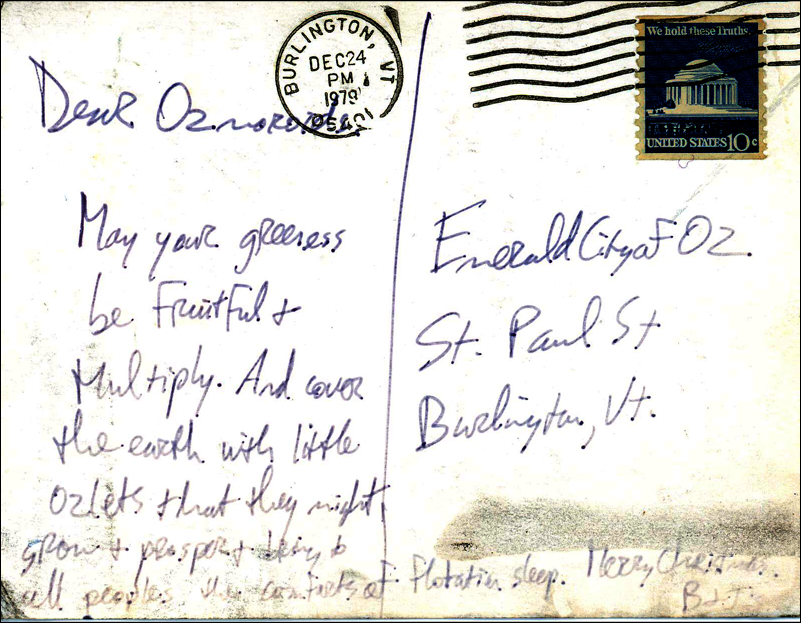 BURLINGTON, VT
DEC 24
PM
1979
05401
We hold these Truths...
UNITED STATES 10c
Dear
May your greeness
be Fruitful &
Multiply. And cover
the earth with little
Ozlets that they might
grow & prosper & bring to
all peoples the comforts of Flotation sleep. Merry Christmas.
Emerald City of Oz.
St. Paul St
Burlington, Vt.